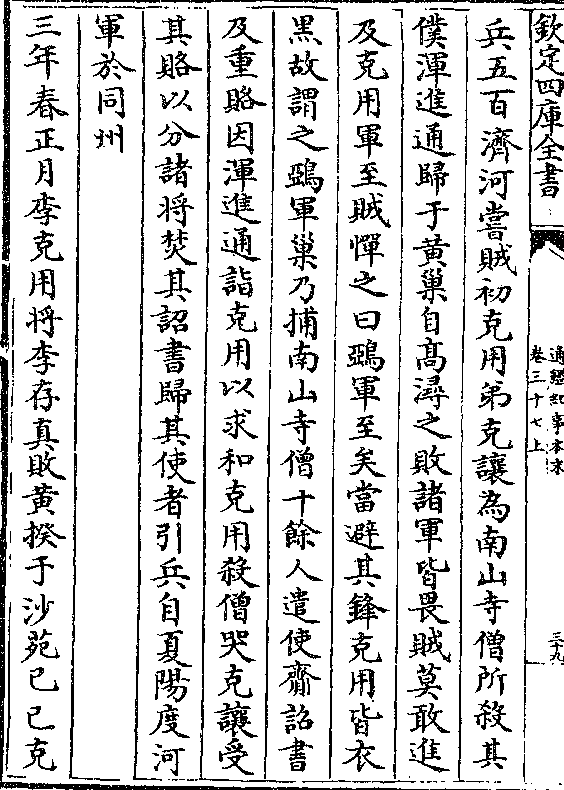 欽定四庫全書
通鑑紀事本末
卷三十七上
三十九
兵五百濟河嘗賊初克用弟克讓為南山寺僧所殺其
僕渾進通歸于黃巢自髙潯之敗諸軍皆畏賊莫敢進
及克用軍至賊憚之曰鵶軍至矣當避其鋒克用皆衣
黒故謂之鵶軍巢乃捕南山寺僧十餘人遣使齎詔書
及重賂因渾進通詣克用以求和克用殺僧哭克讓受
其賂以分諸将焚其詔書歸其使者引兵自夏陽度河
軍於同州
三年春正月李克用将李存真敗黃揆于沙苑已巳克